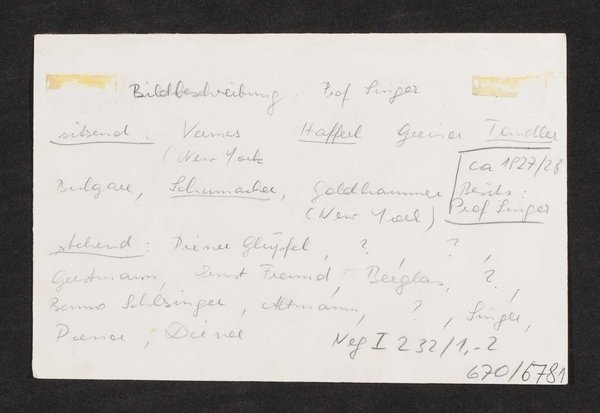 Bildbeschreibung: Prof Singer
sitzend: Vames Hafferl Greiner Tandler
(New York
ca 1927/28
Bulgare, Schumacher, Goldhammer
Besitz:
(New York) Prof Singer
stehend: Diener Glüpfel, ?, ?,
Gerstmann, Ernst Freund, Berglas, ?,
Benno Schlesinger, Altmann, ?, Singer,
Diener, Diener
Neg I 232/1,-2
670/6781